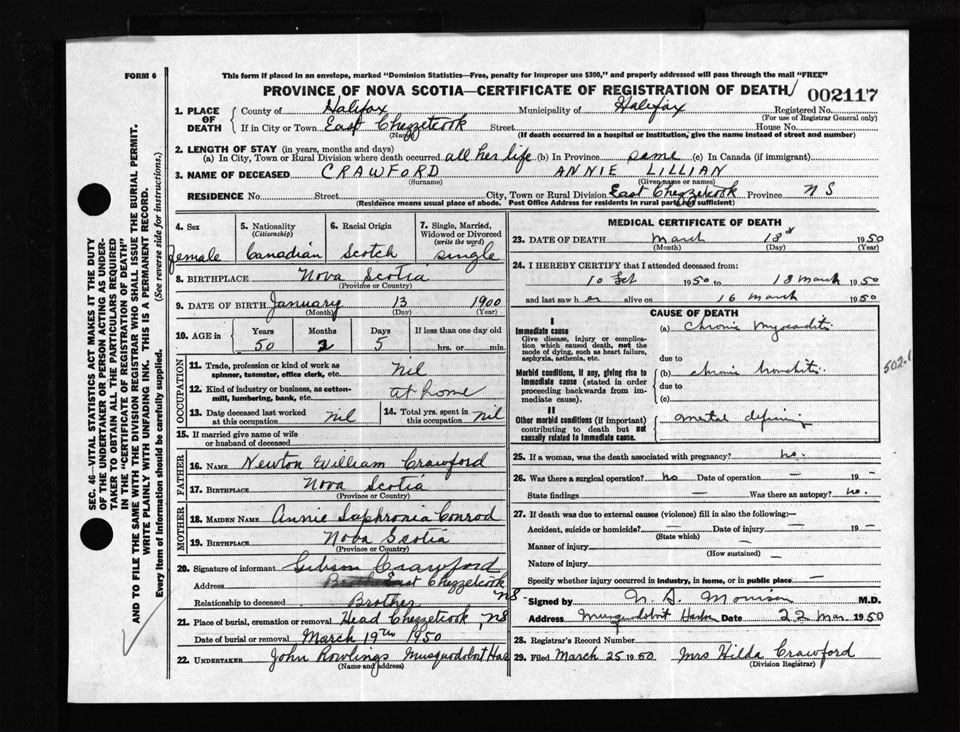 FORM 6
This form if placed in an envelope, marked "Dominion Statistics—Free, penalty for improper use $300," and properly addressed will pass through the mail "FREE"
PROVINCE OF NOVA SCOTIA—CERTIFICATE OF REGISTRATION OF DEATH
002117
1. PLACE OF DEATH
County of Halifax Municipality of Halifax Registered No.
(For use of Registrar General only)
If in City or Town East Chezzetcook Street House No.
(Name) (If death occurred in a hospital or institution, give the name instead of street and number)
2. LENGTH OF STAY (in years, months and days)
(a) In City, Town or Rural Division where death occurred all her life (b) In Province same (c) In Canada (if immigrant)
3. NAME OF DECEASED CRAWFORD ANNIE LILLIAN
(Surname) (Given name or names)
RESIDENCE No. Street City, Town or Rural Division East Chezzetcook Province NS
(Residence means usual place of abode. Post Office Address for residents in rural parts not sufficient)
4. Sex female
5. Nationality (Citizenship) Canadian
6. Racial Origin Scotch
7. Single, Married, Widowed or Divorced (write the word) single
8. BIRTHPLACE Nova Scotia
(Province or Country)
9. DATE OF BIRTH January 13 1900
(Month) (Day) (Year)
10. AGE in Years Months Days If less than one day old
50 2 5 hrs. or min.
OCCUPATION
11. Trade, profession or kind of work as spinner, teamster, office clerk, etc. nil
12. Kind of industry or business, as cotton-mill, lumbering, bank, etc. at home
13. Date deceased last worked at this occupation nil
14. Total yrs. spent in this occupation nil
15. If married give name of wife or husband of deceased
FATHER
16. NAME Newton William Crawford
17. BIRTHPLACE Nova Scotia
(Province or Country)
MOTHER
18. MAIDEN NAME Annie Saphronia Conrod
19. BIRTHPLACE Nova Scotia
(Province or Country)
20. Signature of informant Gibson Crawford
Address East Chezzetcook NS
Relationship to deceased Brother
21. Place of burial, cremation or removal Head Chezzetcook, NS
Date of burial or removal March 19th 1950
22. UNDERTAKER John Rowlings Musquodoboit Har
(Name and address)
MEDICAL CERTIFICATE OF DEATH
23. DATE OF DEATH March 18 1950
(Month) (Day) (Year)
24. I HEREBY CERTIFY that I attended deceased from:
10 1950 to 18 March 1950
and last saw her alive on 16 March 1950
CAUSE OF DEATH
I
Immediate cause
Give disease, injury or complication which caused death, not the mode of dying, such as heart failure, asphyxia, asthenia, etc.
(a) chronic myocarditis
due to
Morbid conditions, if any, giving rise to immediate cause (stated in order proceeding backwards from immediate cause).
(b) chronic bronchitis
due to
(c)
II
Other morbid conditions (if important) contributing to death but not causally related to immediate cause.
mental
25. If a woman, was the death associated with pregnancy? no.
26. Was there a surgical operation? no Date of operation — 19 —
State findings — Was there an autopsy? no.
27. If death was due to external causes (violence) fill in also the following:—
Accident, suicide or homicide? — Date of injury — 19 —
(State which)
Manner of injury —
(How sustained)
Nature of injury —
Specify whether injury occurred in industry, in home, or in public place —
Signed by Morrison M.D.
Address Musquodoboit Harbor Date 22 Mar. 1950
28. Registrar's Record Number
29. Filed March 25 1950 Mrs Hilda Crawford
(Division Registrar)
SEC. 46—VITAL STATISTICS ACT MAKES IT THE DUTY
OF THE UNDERTAKER OR PERSON ACTING AS UNDERTAKER
TO OBTAIN ALL THE PARTICULARS REQUIRED
IN THE "CERTIFICATE OF REGISTRATION OF DEATH"
AND TO FILE THE SAME WITH THE DIVISION REGISTRAR WHO SHALL ISSUE THE BURIAL PERMIT.
WRITE PLAINLY WITH UNFADING INK. THIS IS A PERMANENT RECORD.
Every item of information should be carefully supplied. (See reverse side for instructions.)